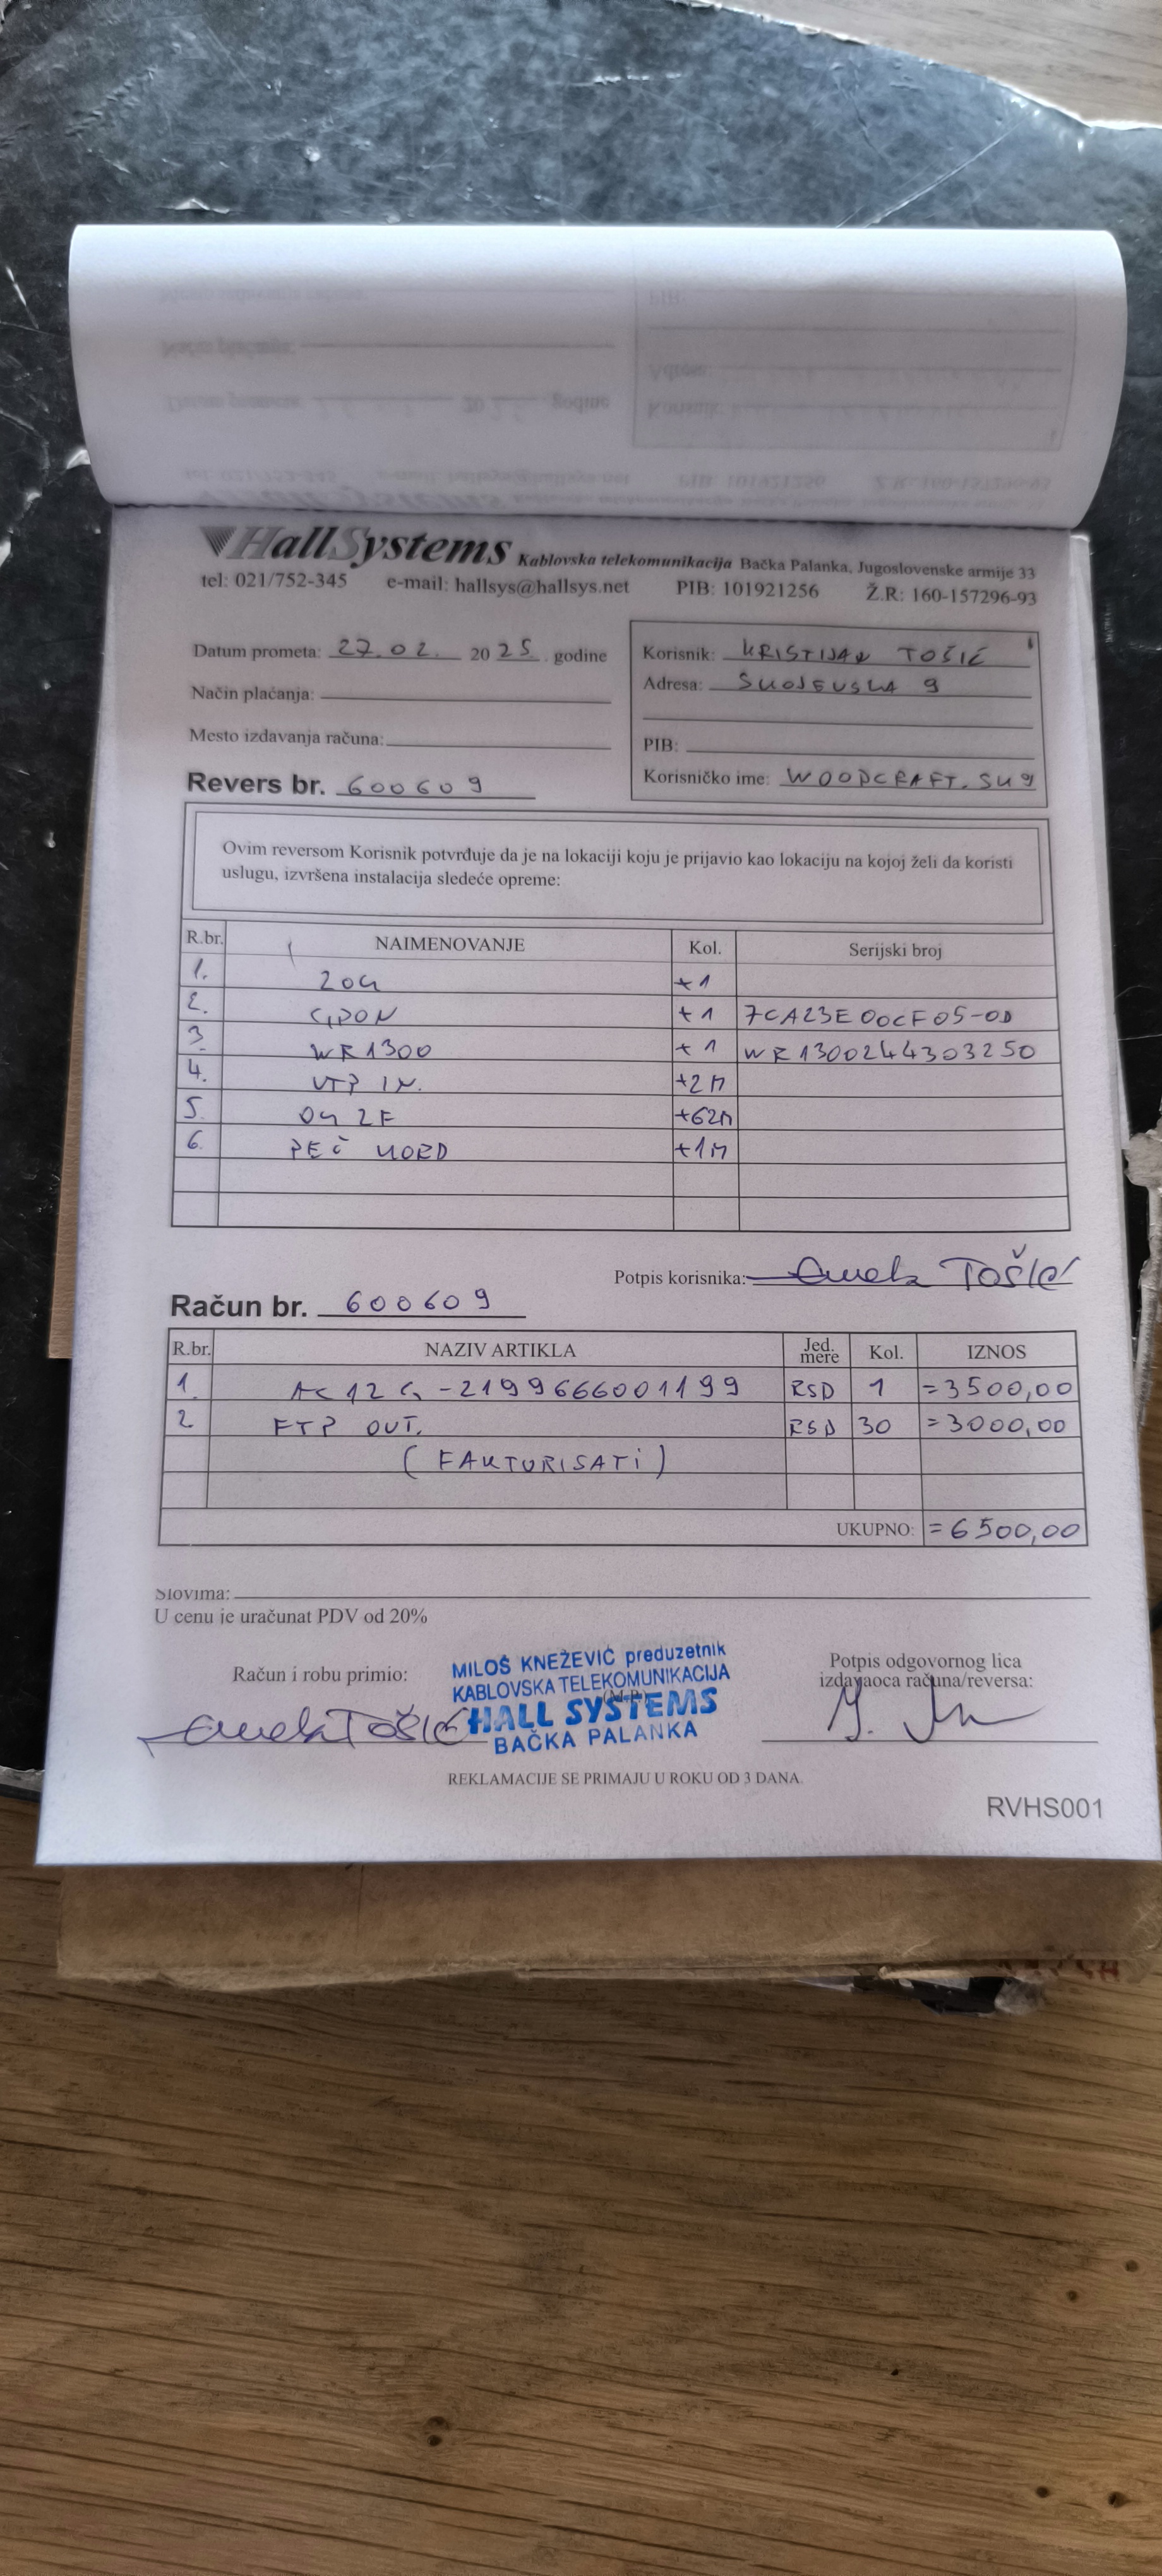 HallSystems Kablovska telekomunikacija Bačka Palanka, Jugoslovenske armije 33
tel: 021/752-345 e-mail: hallsys@hallsys.net PIB: 101921256 Ž.R: 160-157296-93
Datum prometa: 27.02. 2025 godine
Način plaćanja:
Mesto izdavanja računa:
Revers br. 600609
Korisnik: KRISTIJAN TOŠIĆ
Adresa: 9
PIB:
Korisničko ime: WOODCRAFT.SU9
Ovim reversom Korisnik potvrđuje da je na lokaciji koju je prijavio kao lokaciju na kojoj želi da koristi
uslugu, izvršena instalacija sledeće opreme:
R.br. NAIMENOVANJE Kol. Serijski broj
1. ZOK +1
2. GPON +1 7CA23E00CF05-0D
3. WR1300 +1 WR1300244303250
4. UTP IN. +2M
5. OK 2F +62M
6. PEČ KORD +1M
Potpis korisnika: Tošić
Račun br. 600609
R.br. NAZIV ARTIKLA Jed. mere Kol. IZNOS
1. AC12G-2199666001199 RSD 1 =3500,00
2 FTP OUT. RSD 30 =3000,00
(FAKTURISATI)
UKUPNO: =6500,00
Slovima:
U cenu je uračunat PDV od 20%
Račun i robu primio:
Tošić
MILOŠ KNEŽEVIĆ preduzetnik
KABLOVSKA TELEKOMUNIKACIJA
(M.P.)
HALL SYSTEMS
BAČKA PALANKA
Potpis odgovornog lica
izdavaoca računa/reversa:
REKLAMACIJE SE PRIMAJU U ROKU OD 3 DANA.
RVHS001